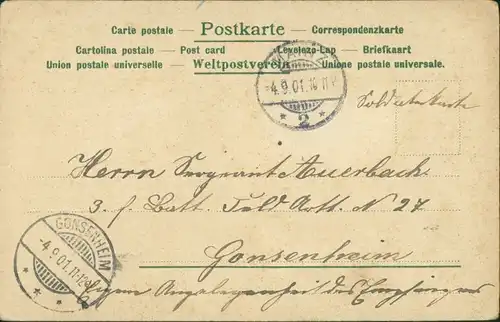 Carte postale — Postkarte — Correspondenzkarte
Cartolina postale — Post card Levelezo-Lap — Briefkaart
Union postale universelle — Weltpostverein — Unione postale universale.
MAINZ
-4.9.01.10-11V
* 2 *
Soldatenkarte
Herrn Sergeant Auerbach
3. f. Batt. Feld Artt. N 27
Gonsenheim
GONSENHEIM
-4.9.01.11-12V
Eigene Angelegenheit des Empfängers